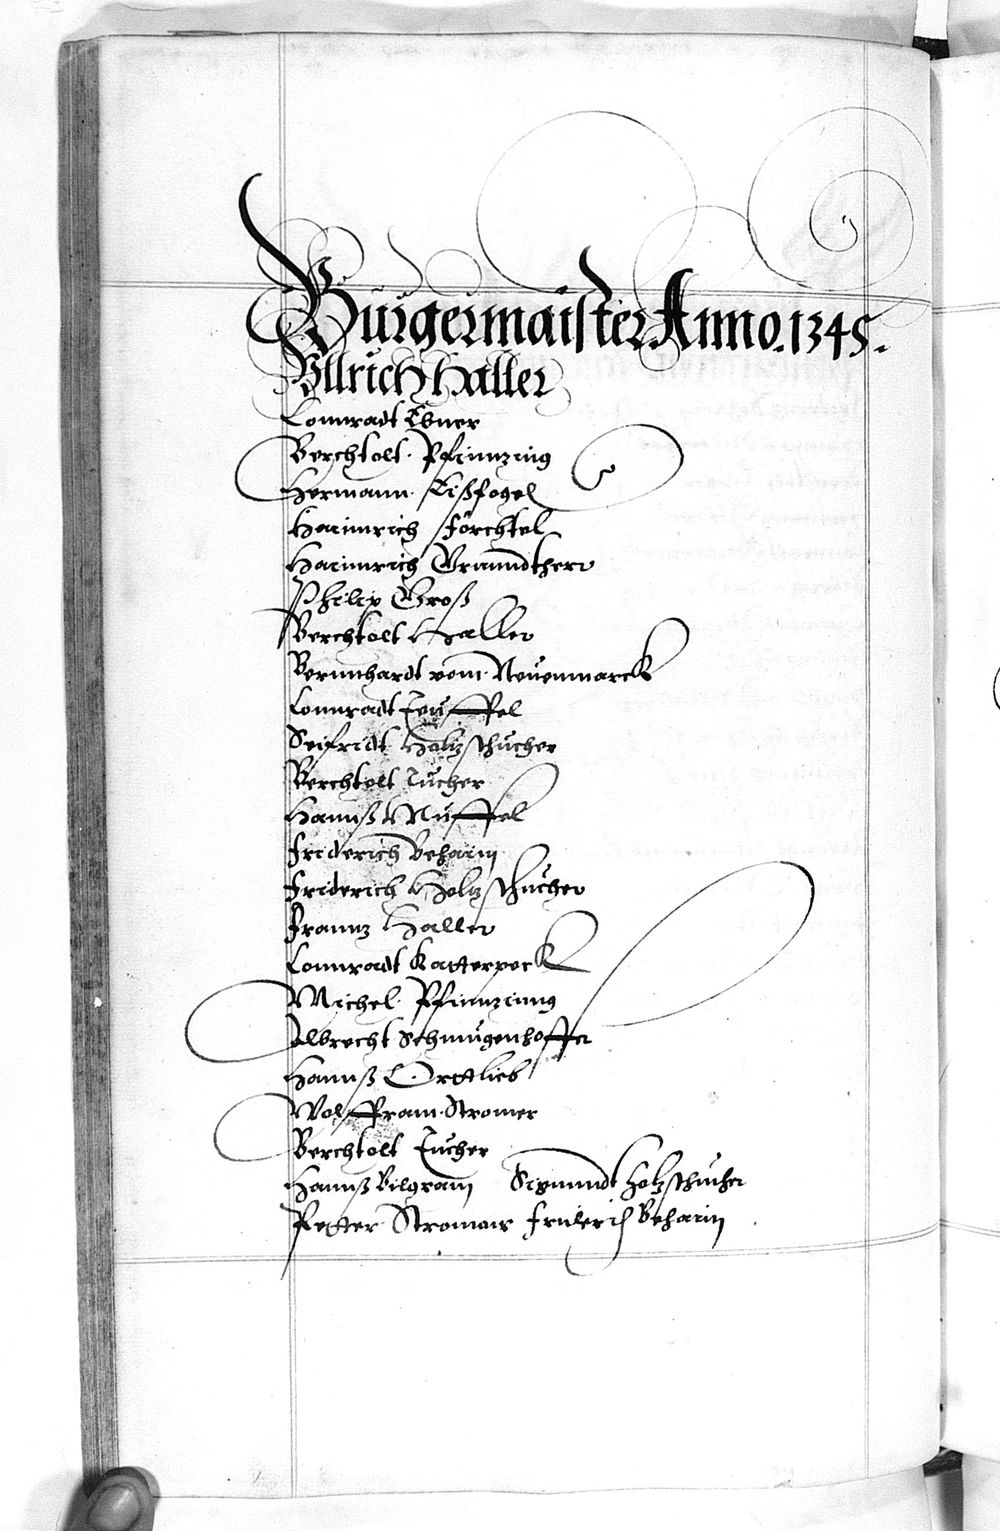 Burgermaister Anno. 1345.
Vllrich Haller
Connradt Ebner
Berchtolt Pfinnzing
Hermann Eißfogel
Hainnrich Förchtel
Hainnrich Grunndtherr
Philip Groß
Berchtolt Haller
Bernnhardt vom Neuenmarck
Connradt Teuffel
Seifridt Holtzschucher
Berchtolt Tucher
Hannß Muffel
Friderich Behaim
Friderich Holtzschucher
Frannz Haller
Connradt Katterpeck
Michel Pfinnzinng
Albrecht Schmugenhoffer
Hannß Orttlieb
Wolffram Stromer
Berchtolt Tucher
Hannß Bilgram Sigmundt Holtzschucher
Petter Stromair Friderich Behaim